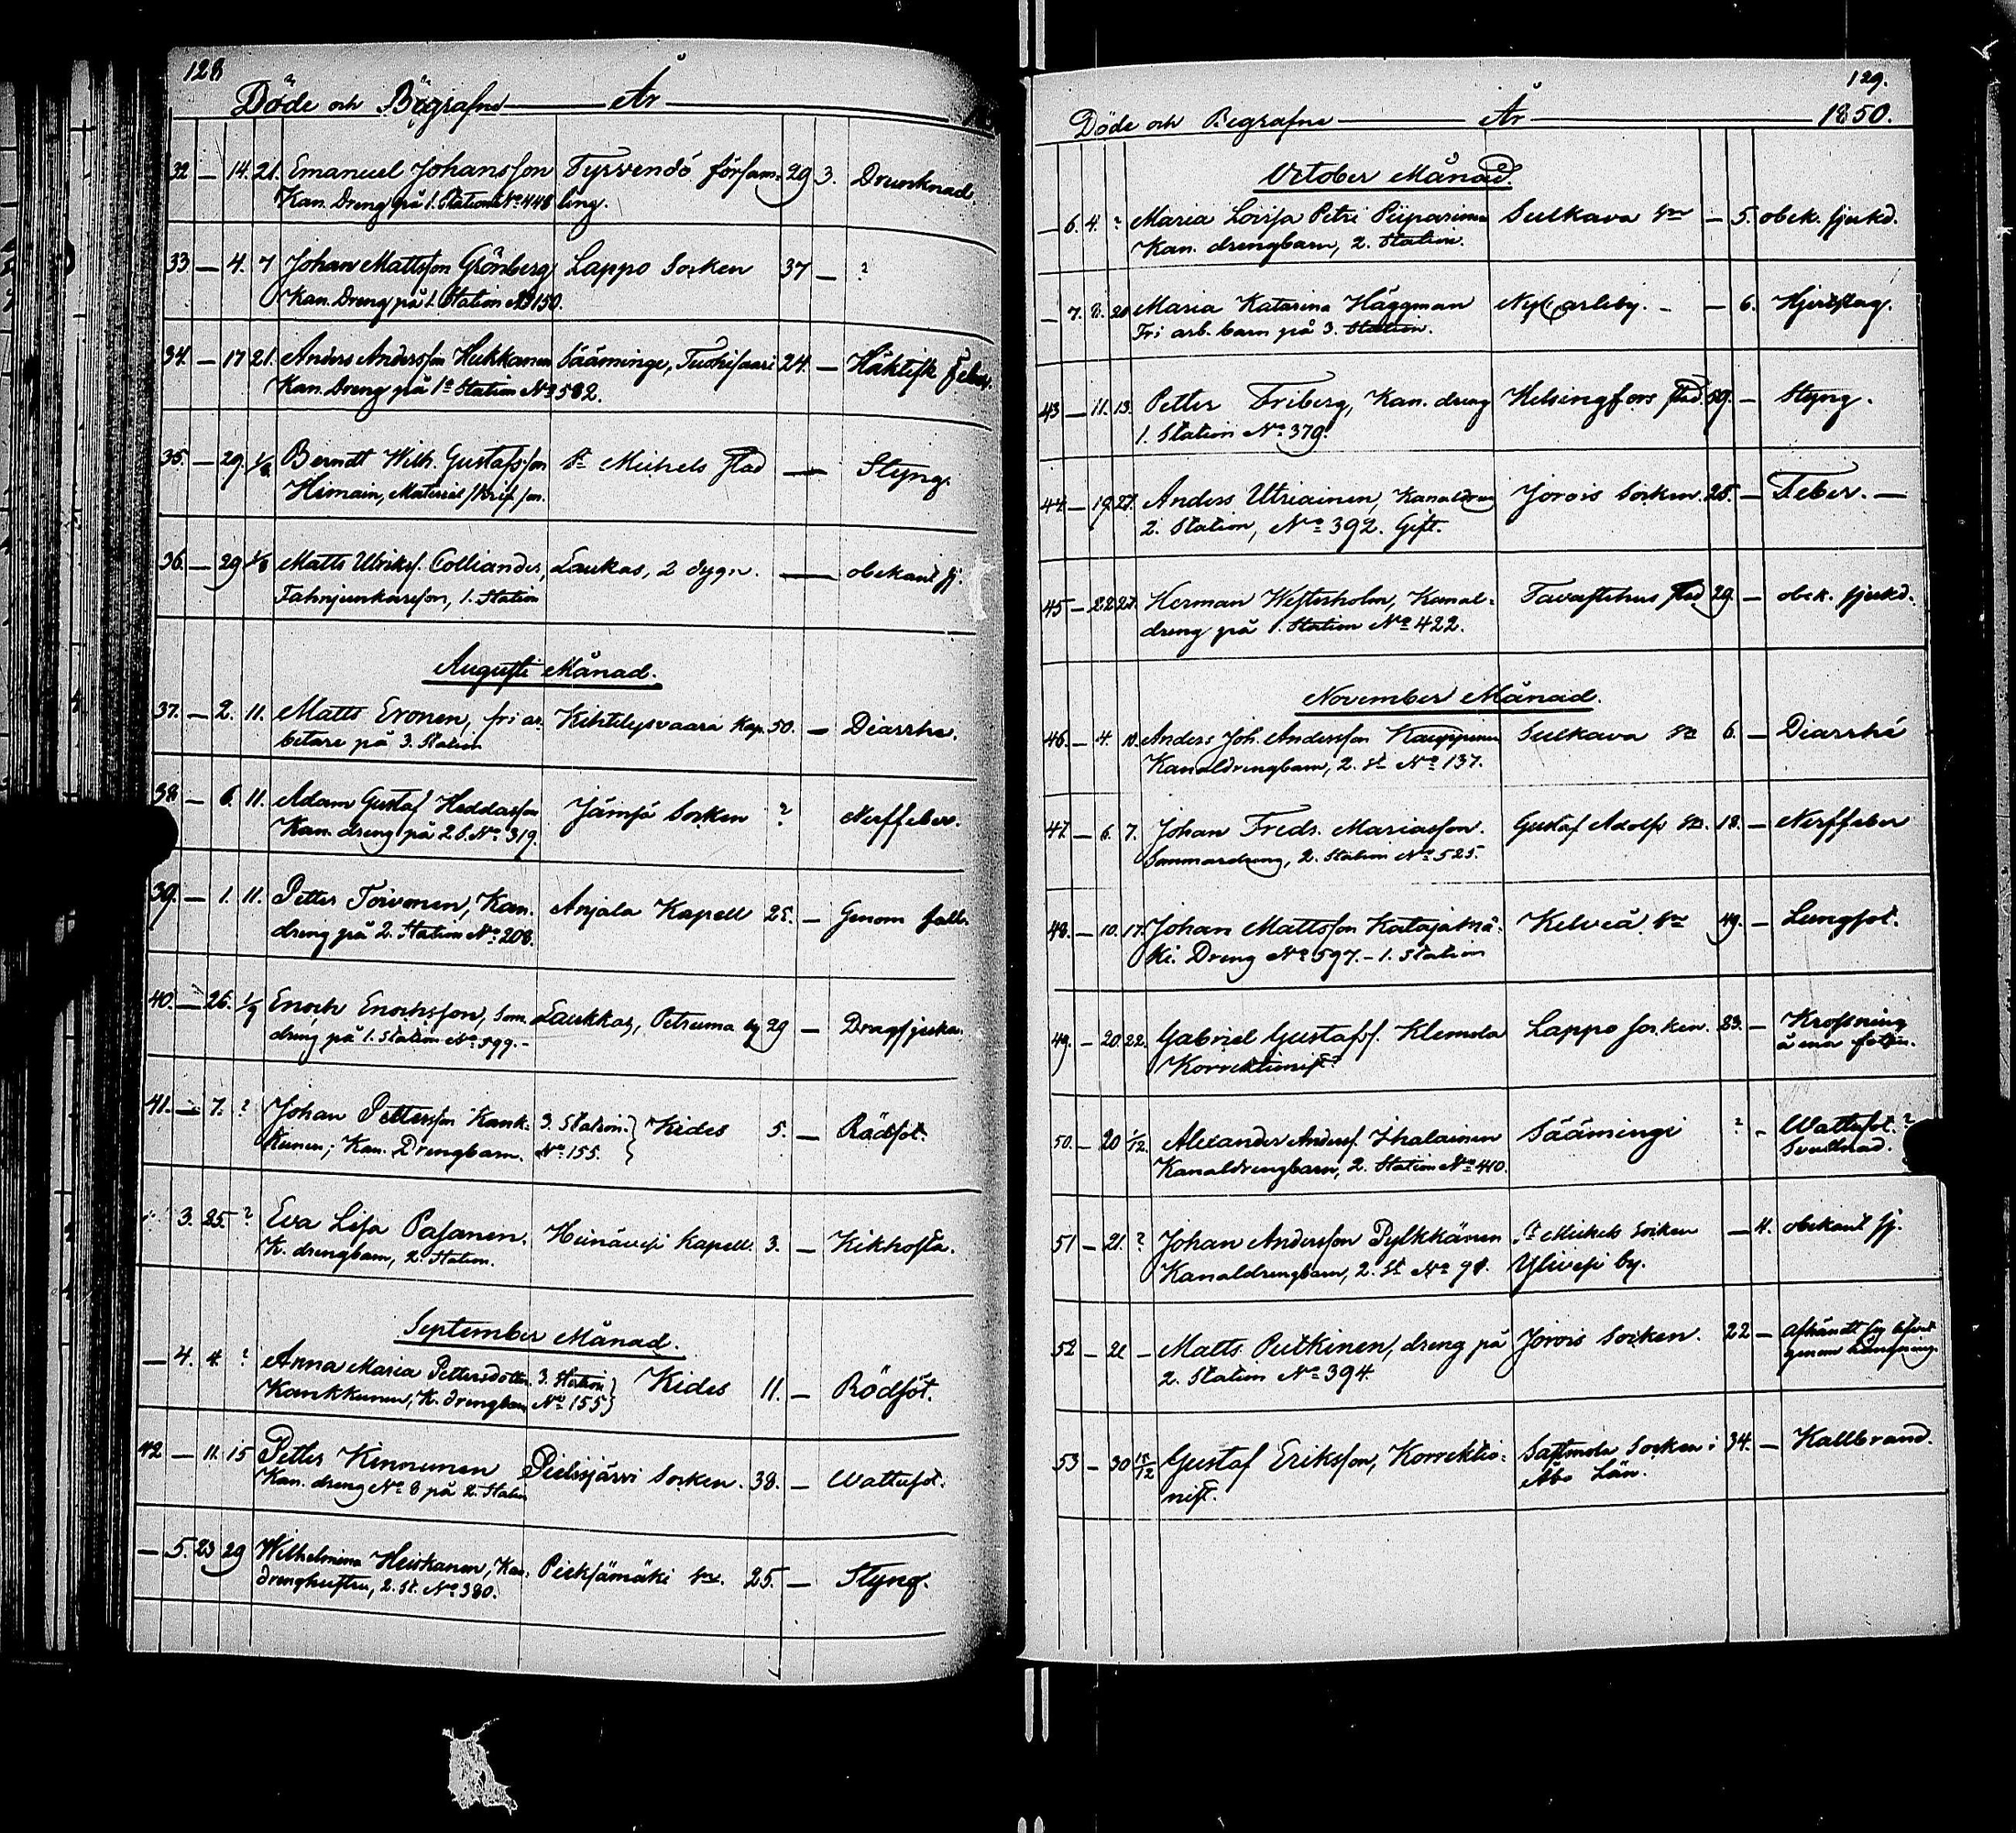 128
Döde och Begrafne År
32 — 14. 21. Emanuel Johansson Tyrvendö försam- 29 3. Drunknad
Kan. Dreng på 1. Station No 448 ling.
33 — 4. 7 Johan Mattsson Grönberg Lappo Socken 37 — ?
Kan. Dreng på 1. Station No 150.
34. — 17 21. Anders Andersson Heikkanen Sääminge, 24. — Häktisk Feber.
Kan. Dreng på 1a Station No 582.
35. — 29. 1/8 Berndt Wilh. Gustafsson St Michels stad — Styng.
36. — 29 1/8 Matts Ulriksf. Colliander, Laukas, 2 dygn. — obekant sj.
Fahnjunkaresson, 1. Station
Augusti Månad.
37. — 2. 11. Matts Eronen, fri ar- Kihtelysvaara Kap. 50. — Diarrhe.
betare på 3. Station
38 — 6. 11. Adam Gustaf Heddasson Jämsä Socken ? Nerffeber.
Kan. dreng på 2 S. No 319.
39. — 1. 11. Petter Toivonen, Kan. Anjala Kapell 25. — Genom fall.
dreng på 2. Station No 208.
40. — 26. 1/9 Enoch Enochsson, Som. Laukkas, Petruma by 29 — Dragsjuka.
dreng på 1. Station No 599. -
41. — 7. ? Johan Pettersson Kank- 3. Station. Kides 5. — Rödsot.
kunen; Kan. Drengbarn. No 155.
3. 25. ? Eva Lisa Pasanen. Heinävesi Kapell. 3. — Kikhosta.
K. drengbarn, 2. Station.
September Månad.
— 4. 4. ? Anna Maria Pettersdotter 3. Station Kides 11. — Rödsot.
Kankkunen, K. drengbarn No 155
42 — 11. 15 Petter Kinnunen Pielisjärvi Socken. 38. — Wattusot.
Kan. dreng No 8 på 2. Station
— 5. 23 29 Wilhelmina Heiskanen, Kan. Pieksämäki Sn. 25. — Styng.
drenghustru, 2. St. No 380.
129.
Döde och Begrafne År 1850.
October Månad.
— 6. 4. ? Maria Lovisa Petri Piiparinen Sulkava Sn — 5. obek. sjukd.
Kan. drengbarn, 2. Station.
— 7. 8. 20 Maria Katarina Häggman Ny Carleby. - — 6. Hjertslag.
Fri arb. barn på 3. Station.
43 — 11. 13. Petter Friberg, Kan. dreng Helsingfors stad. 59. — Styng.
1. Station No 379.
44. — 19. 27. Anders Utriainen, Kanaldreng Jorois Socken. 25. — Feber. —
2. Station, No 392. Gift.
45 — 22 27. Herman Westerholm, Kanal- Tavastehus stad 29. — obek. sjukd.
dreng på 1. Station No 422.
November Månad.
46. — 4. 10. Anders Joh. Andersson Kauppinen Sulkava Sn 6. — Diarrhé
Kanaldrengbarn, 2. St No 137.
47. — 6. 7. Johan Fredr. Mariasson. Gustaf Adolfs Sn. 18. — Nerffeber
Sommardreng, 2. Station No 525.
48. — 10. 17. Johan Mattsson Katajamä- Kelviå Sn 49. — Lungsot.
ki. Dreng No 597. - 1. Station
49. — 20. 22. Gabriel Gustafsf. Klemola Lappo socken. 23. — Krossning
Korrektionist å ena foten.
50. — 20 1/12 Alexander Andersf. Ihalainen Sääminge ? - Wattusot. ?
Kanaldrengbarn, 2. Station No 410. Svullnad.
51 — 21. ? Johan Andersson Pylkkänen St Michels Socken — 4. obekant sj.
Kanaldrengbarn, 2. St No 91. Ylivesi by.
52 — 21 — Matts Putkinen, dreng på Jorois Socken. 22 — Afhändt sig lifvet
2. Station No 394. genom hängning.
53 — 30 15/12 Gustaf Eriksson, Korrektio- Sastmola Socken i 34. — Kallbrand.
nist. Åbo Län.